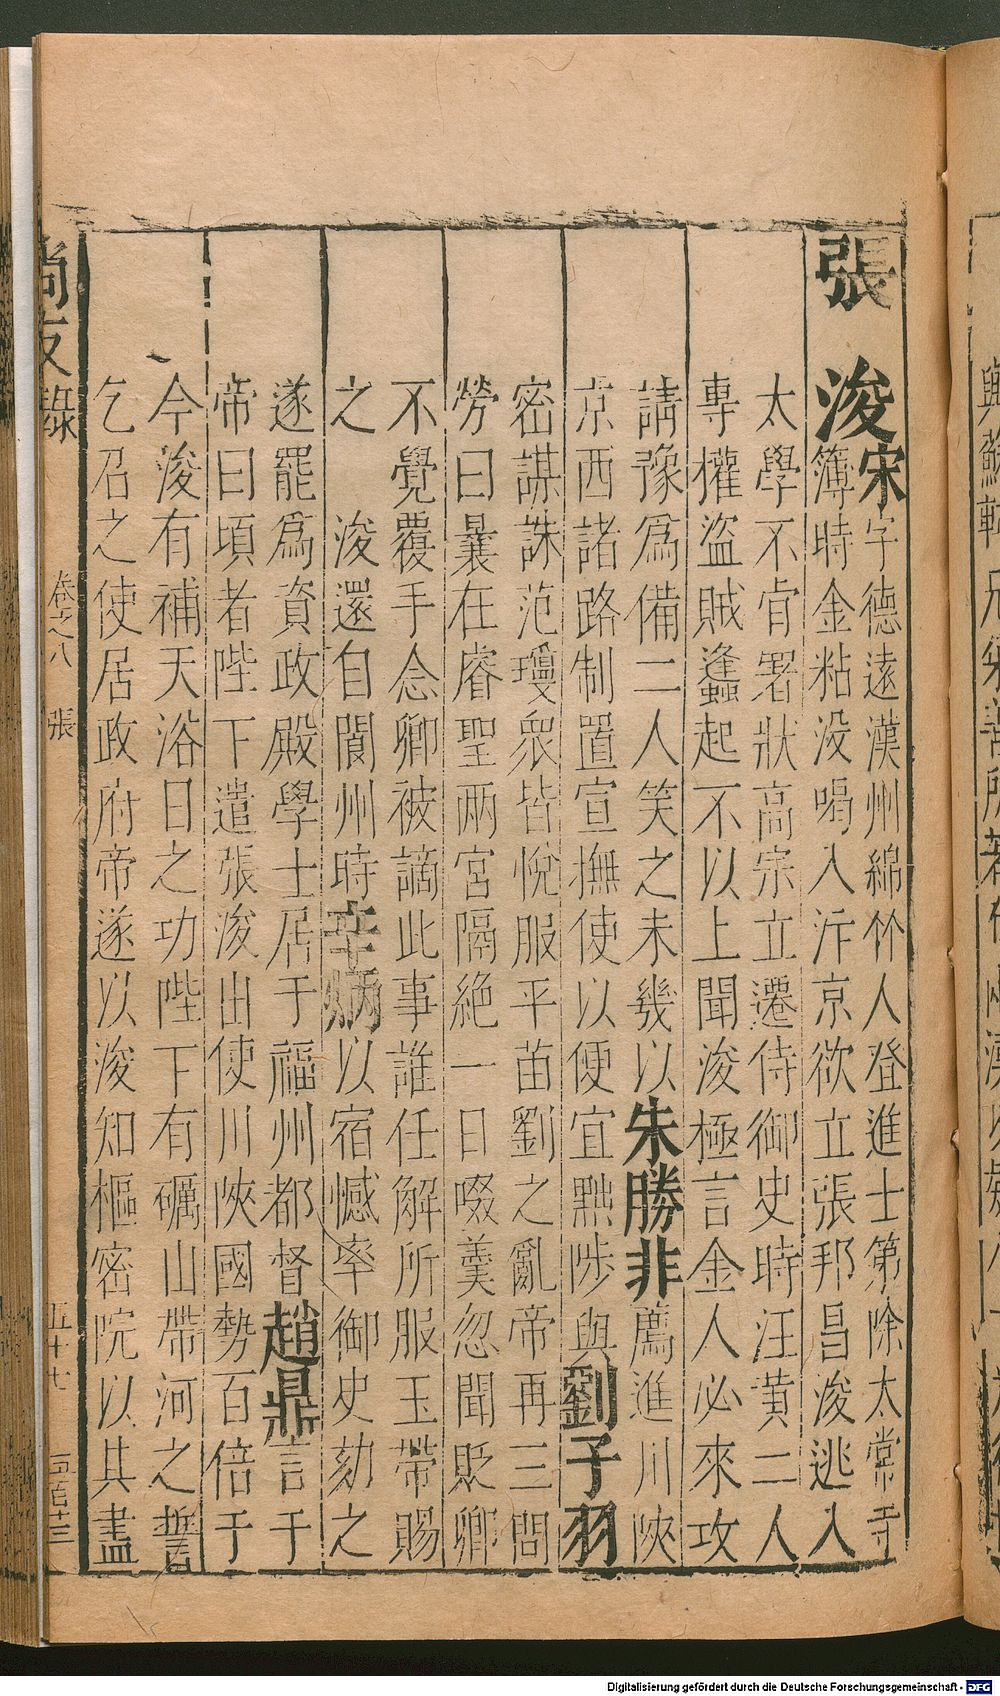 張 浚宋字德遠漢州綿竹人登進士第除太常寺
簿時金粘没喝入汴京欲立張邦昌浚逃入
太學不肯署狀高宗立遷侍御史時汪黃二人
專權盜賊蠭起不以上聞浚極言金人必來攻
請豫爲備二人笑之未幾以朱勝非薦進川陜
京西諸路制置宣撫使以便宜黜陟與劉子羽
密謀誅范瓊衆皆悅服平苗劉之亂帝再三問
勞曰曩在睿聖两宮隔絶一日啜羹忽聞貶卿
不覺覆手念卿被謫此事誰任解所服玉帶賜
之 浚還自閬州時辛炳以宿憾率御史劾之
遂罷爲資政殿學士居于福州都督趙鼎言于
帝曰頃者陛下遣張浚出使川陜國勢百倍于
今浚有補天浴日之功陛下有礪山帶河之誓
乞召之使居政府帝遂以浚知樞密院以其盡
尚友錄 卷之八 張 五十七 五百十三
Digitalisierung gefördert durch die Deutsche Forschungsgemeinschaft - DFG